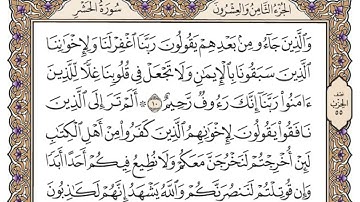 الجزء الثامن والعشرون
سورة الحشر
وَٱلَّذِينَ جَآءُو مِنۢ بَعْدِهِمْ يَقُولُونَ رَبَّنَا ٱغْفِرْ لَنَا وَلِإِخْوَٰنِنَا
ٱلَّذِينَ سَبَقُونَا بِٱلْإِيمَٰنِ وَلَا تَجْعَلْ فِى قُلُوبِنَا غِلًّا لِّلَّذِينَ
ءَامَنُوا۟ رَبَّنَآ إِنَّكَ رَءُوفٌ رَّحِيمٌ ١٠ ۞ أَلَمْ تَرَ إِلَى ٱلَّذِينَ
نَافَقُوا۟ يَقُولُونَ لِإِخْوَٰنِهِمُ ٱلَّذِينَ كَفَرُوا۟ مِنْ أَهْلِ ٱلْكِتَٰبِ
لَئِنْ أُخْرِجْتُمْ لَنَخْرُجَنَّ مَعَكُمْ وَلَا نُطِيعُ فِيكُمْ أَحَدًا أَبَدًا
وَإِن قُوتِلْتُمْ لَنَنصُرَنَّكُمْ وَٱللَّهُ يَشْهَدُ إِنَّهُمْ لَكَٰذِبُونَ
الحزب
٥٥